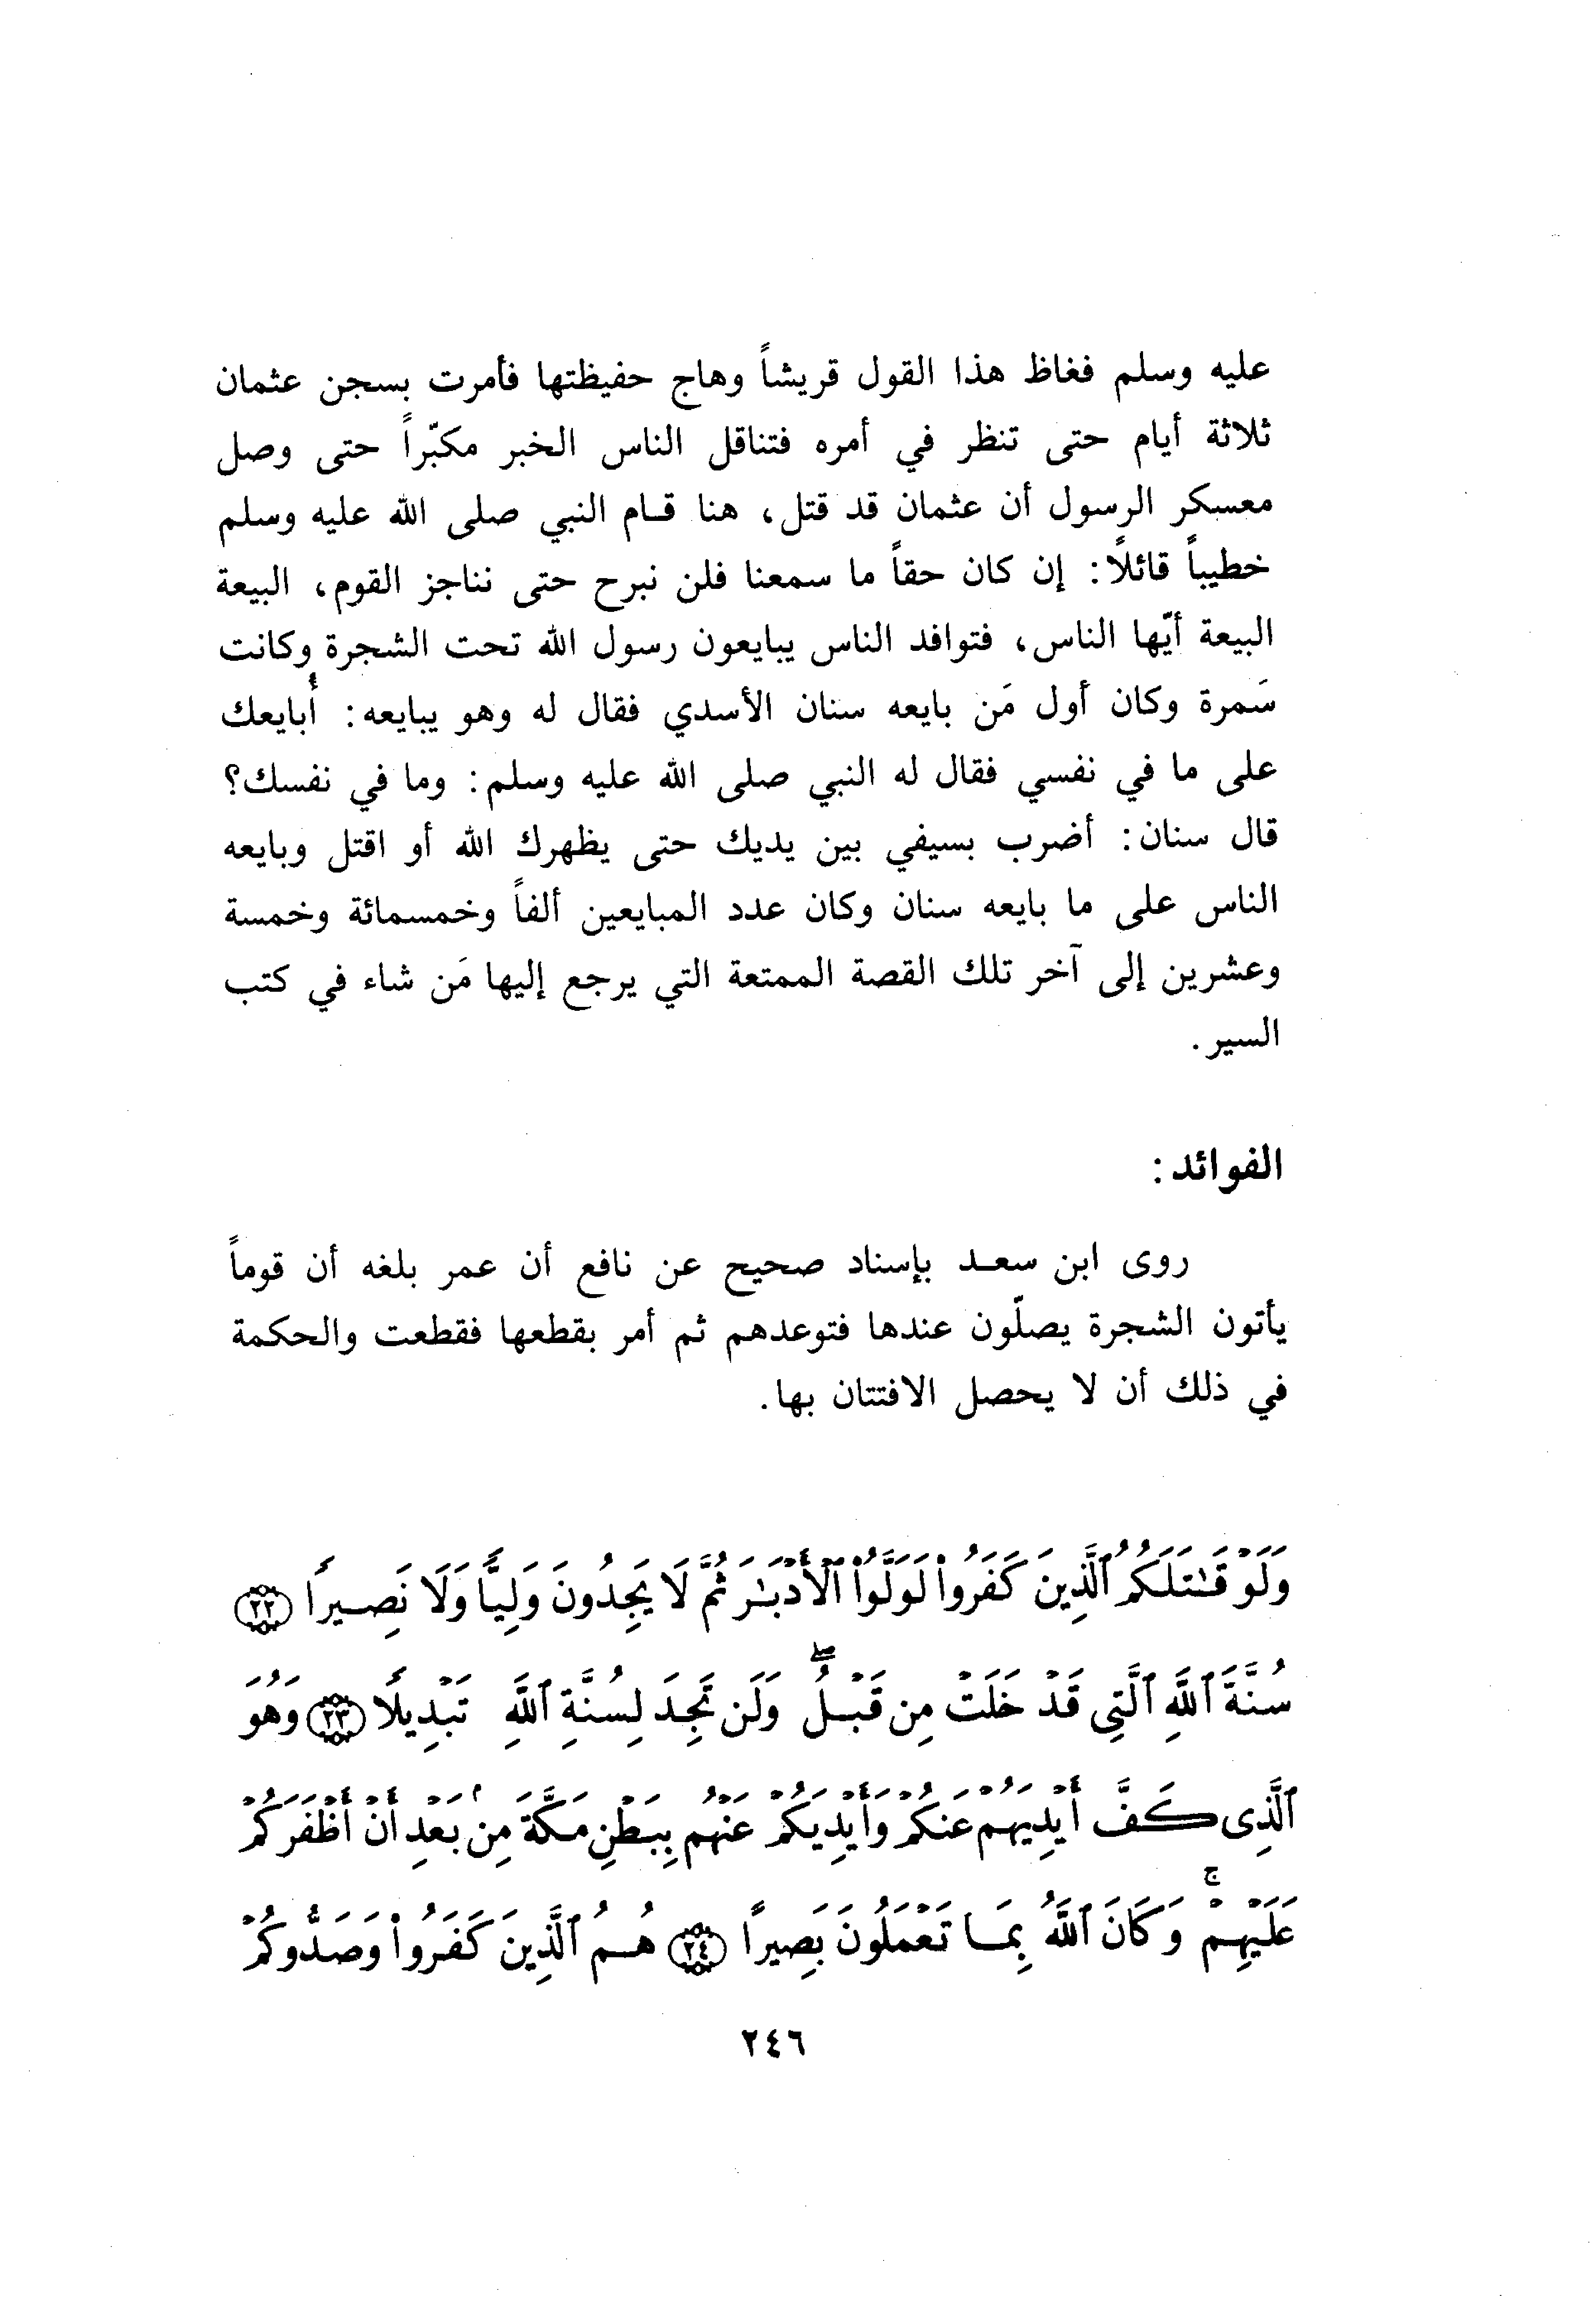 عليه وسلم فغاظ هذا القول قريشاً وهاج حفيظتها فأمرت بسجن عثمان
ثلاثة أيام حتى تنظر في أمره فتناقل الناس الخبر مكبّراً حتى وصل
معسكر الرسول أن عثمان قد قتل، هنا قام النبي صلى الله عليه وسلم
خطيباً قائلاً: إن كان حقاً ما سمعنا فلن نبرح حتى نناجز القوم، البيعة
البيعة أيّها الناس، فتوافد الناس يبايعون رسول الله تحت الشجرة وكانت
سَمرة وكان أول مَن بايعه سنان الأسدي فقال له وهو يبايعه: أُبايعك
على ما في نفسي فقال له النبي صلى الله عليه وسلم: وما في نفسك؟
قال سنان: أضرب بسيفي بين يديك حتى يظهرك الله أو اقتل وبايعه
الناس على ما بايعه سنان وكان عدد المبايعين ألفاً وخمسمائة وخمسة
وعشرين إلى آخر تلك القصة الممتعة التي يرجع إليها مَن شاء في كتب
السير.
الفوائد:
روى ابن سعد بإسناد صحيح عن نافع أن عمر بلغه أن قوماً
يأتون الشجرة يصلّون عندها فتوعدهم ثم أمر بقطعها فقطعت والحكمة
في ذلك أن لا يحصل الافتتان بها.
وَلَوۡ قَٰتَلَكُمُ ٱلَّذِينَ كَفَرُواْ لَوَلَّوُاْ ٱلۡأَدۡبَٰرَ ثُمَّ لَا يَجِدُونَ وَلِيًّا وَلَا نَصِيرًا ٢٢
سُنَّةَ ٱللَّهِ ٱلَّتِي قَدۡ خَلَتۡ مِن قَبۡلُۖ وَلَن تَجِدَ لِسُنَّةِ ٱللَّهِ تَبۡدِيلًا ٢٣ وَهُوَ
ٱلَّذِى كَفَّ أَيۡدِيَهُمۡ عَنكُمۡ وَأَيۡدِيَكُمۡ عَنۡهُم بِبَطۡنِ مَكَّةَ مِنۢ بَعۡدِ أَنۡ أَظۡفَرَكُمۡ
عَلَيۡهِمۡۚ وَكَانَ ٱللَّهُ بِمَا تَعۡمَلُونَ بَصِيرًا ٢٤ هُمُ ٱلَّذِينَ كَفَرُواْ وَصَدُّوكُمۡ
٢٤٦